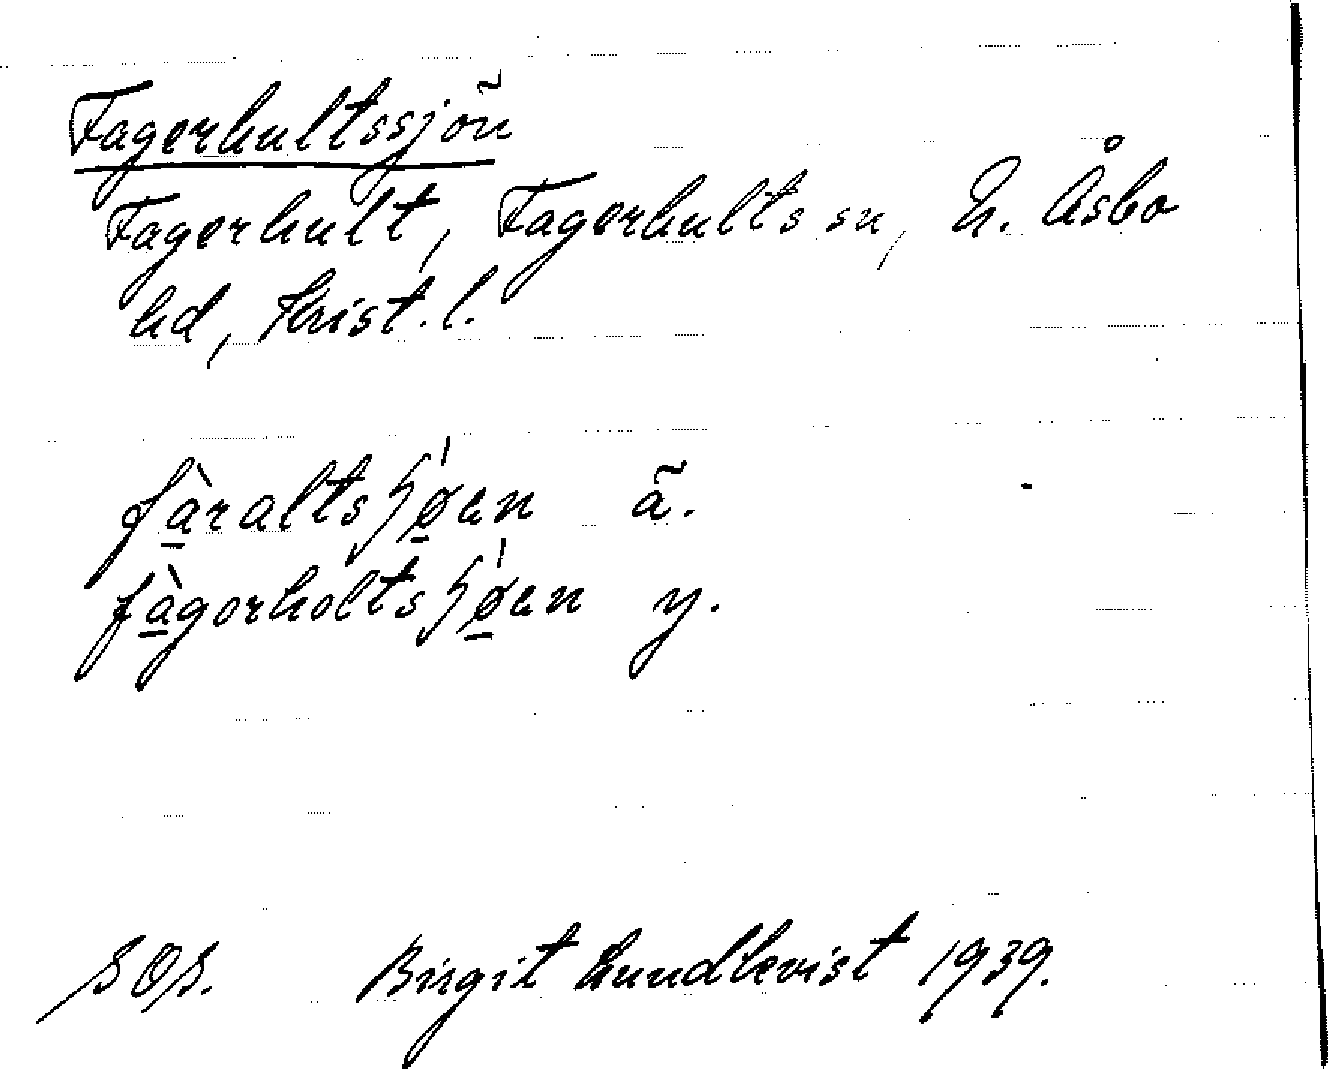 Fagerhultssjön
Fagerhult, Fagerhults sn, N. Åsbo
hd, Krist. l.
fàraltsʃǿen ä.
fàgorholtsʃǿen y.
SOS. Birgit Lundkvist 1939.